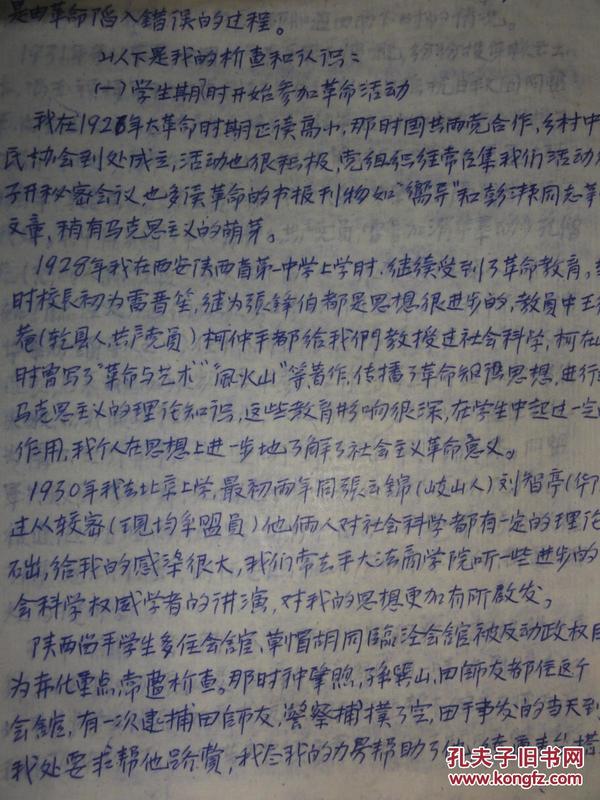 是由革命陷入错误的过程。
以下是我的检查和认识：
(一)学生期时开始参加革命活动
我在1926年大革命时期正读高小，那时国共两党合作，乡村中
民协会到处成立，活动也很积极，党组织经常召集我们活动
子开秘密会议，也多读革命的书报刊物如"嚮导"和彭湃同志等
文章，稍有马克思主义的萌芽。
1928年我在西安陕西省第一中学上学时，继续受到了革命教育，
时校长初为雷晋笙，继为張鋒伯都是思想很进步的，教员中王
菴(乾县人，共产党员)柯仲平都给我們教授过社会科学，柯在
时曾写了"革命与艺术""风火山"等著作，传播了革命 思想，进行
马克思主义的理论知识，这些教育影响很深，在学生中起过一定
作用，我个人在思想上进一步地了解了社会主义革命意义。
1930年我去北京上学，最初两年同張云錦(岐山人)刘智亭(华
过从较密(现均系盟员)他俩人对社会科学都有一定的理论
础，给我的感染很大，我们常去平大法商学院听一些进步的
会科学权威学者的讲演，对我的思想更加有所启发。
陕西留平学生多住会馆，草帽胡同臨泾会馆被反动政权目
为赤化重点，常遭检查。那时种肇煦， 山，田师友都住这个
会馆，有一次逮捕田师友，警察捕摸了空，田于事发的当天到
我处要求帮他路费，我尽我的力量帮助了他
孔夫子旧书网
www.kongfz.com